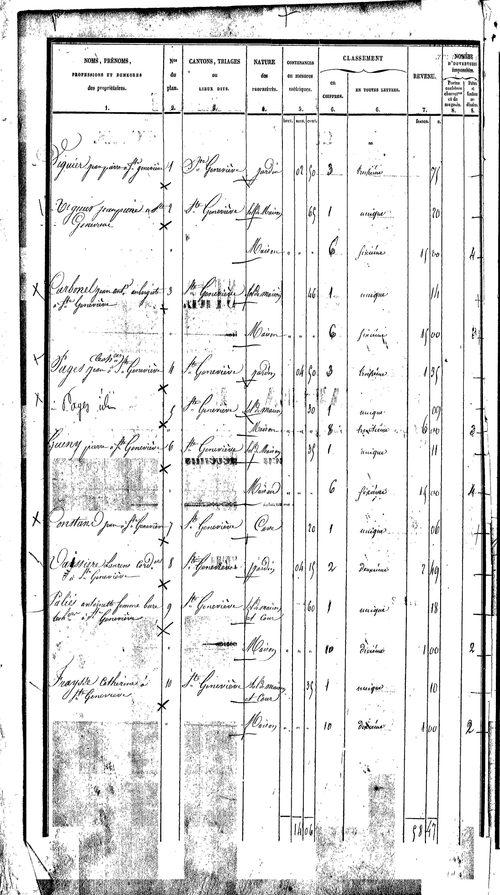 NOMS, PRÉNOMS, PROFESSIONS ET DEMEURES des propriétaires. Nos du plan. CANTONS, TRIAGES ou LIEUX DITS. NATURE des PROPRIÉTÉS. CONTENANCES EN MESURES métriques. CLASSEMENT en CHIFFRES. EN TOUTES LETTRES. REVENU. NOMBRE D'OUVERTURES imposables.
1. 2. 3. 4. 5. 6. 6. 7. 8. 8.
hect. ares. cent. francs. c.
Viguier jean pierre à Ste geneviève 1 Ste Geneviève jardin 02 50 3 troisième 75
Viguier jean pierre à Ste Geneviève 2 Ste Geneviève sol de Maison 65 1 unique 20
Maison 6 sixième 15 00 4
Carbonel jean ant. aubergiste à Ste Geneviève 3 Ste Geneviève sol de maison 46 1 unique 14
Maison 6 sixième 15 00
Pages jean à Ste Geneviève 4 Ste Geneviève jardin 04 50 3 troisième 1 35
Pages idem 5 Ste Geneviève sol de maison 30 1 unique 09
Maison 8 huitième 6 00 2
pierre à Ste Geneviève 6 Ste Geneviève sol de Maison 35 1 unique 11
Maison 6 sixième 15 00 4
Constand jean à Ste Geneviève 7 Ste Geneviève Cave 20 1 unique 06
Vaissiere Laurens cord. à Ste Geneviève 8 Ste Geneviève jardin 04 15 2 deuxième 2 49
antoinette femme à Ste Geneviève 9 Ste Geneviève sol de maison et Cour 60 1 unique 18
Maison 10 dixième 1 00 2
Fraysse Catherine à Ste Geneviève 10 Ste Geneviève sol de maison et Cour 35 1 unique 10
Maison 10 dixième 1 00 2
14 06 58 47